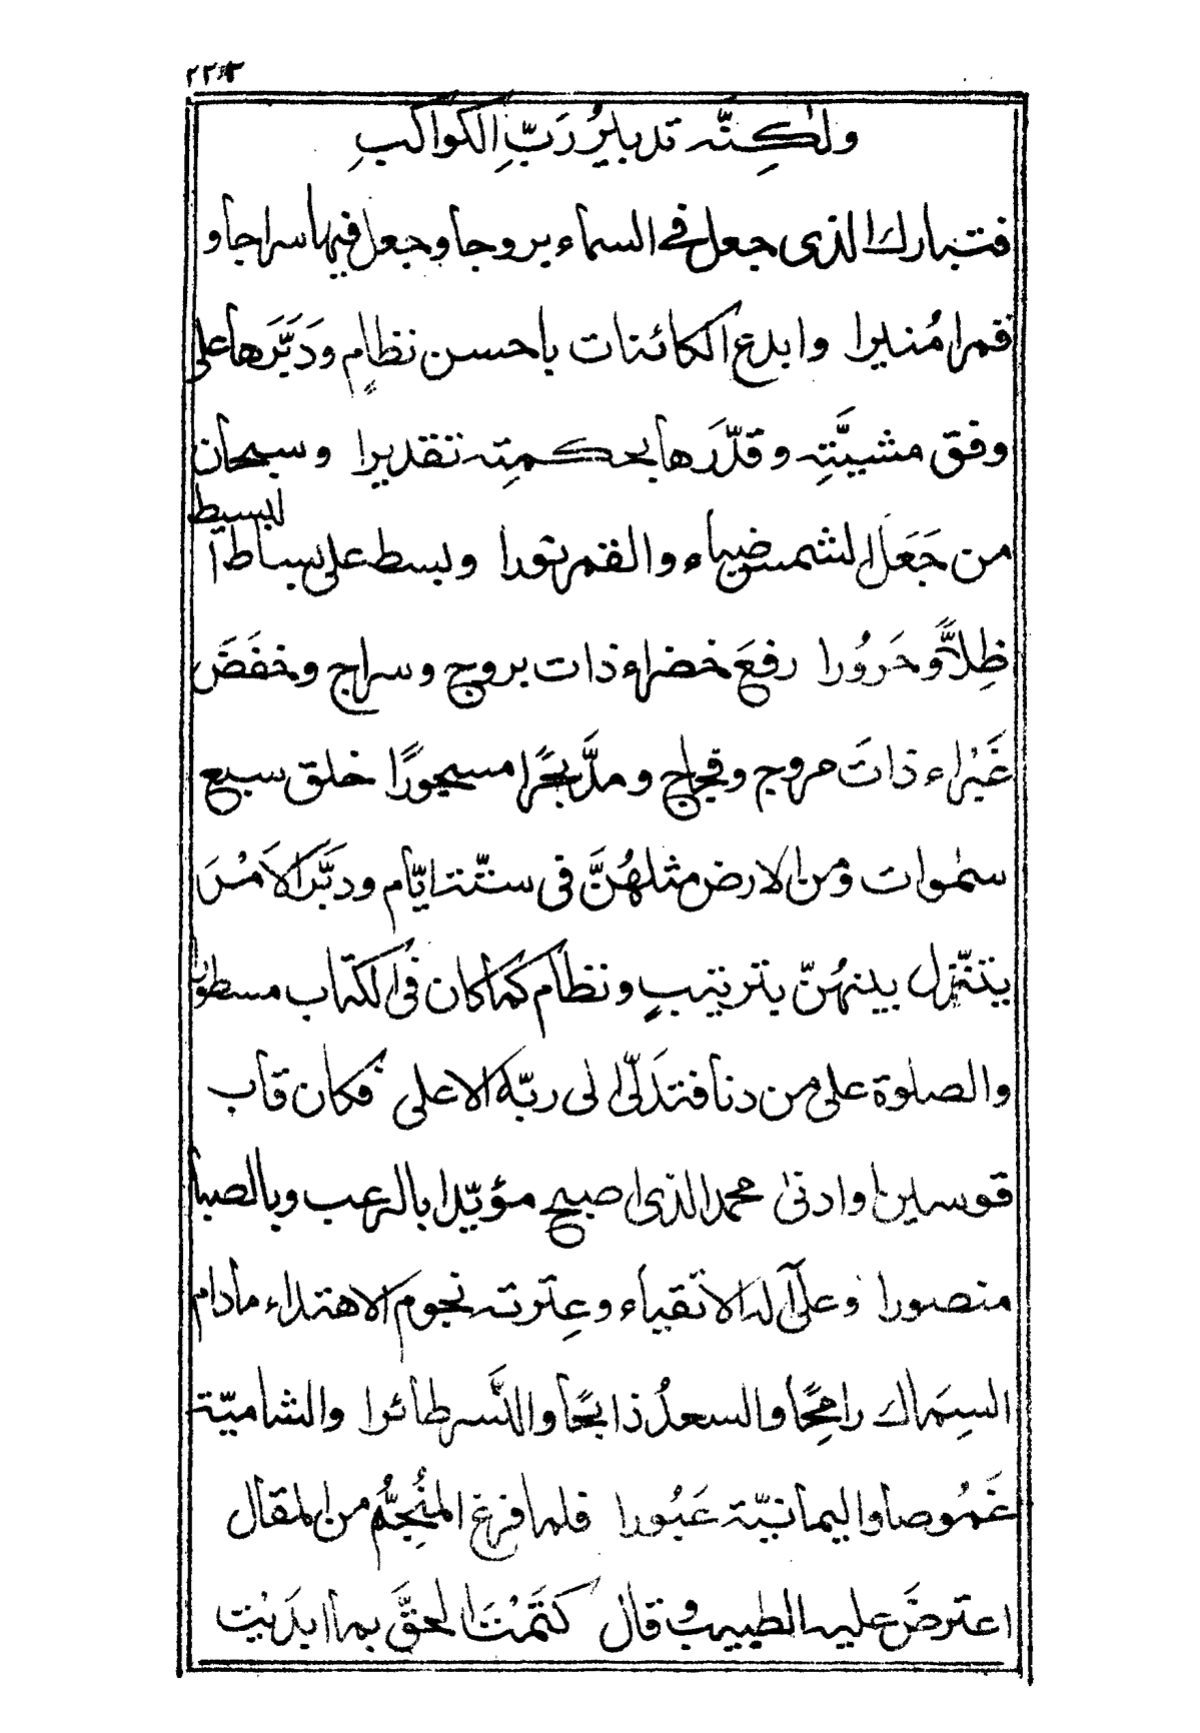 ٢٢٣
ولٰكِنَّه تدبيرُ رَبِّ الكواكبِ
فتبارك الذى جعل فى السماء بروجا وجعل فيها سراجا و
قمرا مُنيرا وابدع الكائنات باحسن نظامٍ ودَبَّرَها على
وفق مشيَّتِه و قدَّرَها بحكمتِه تقديرا وسبحان
من جَعَل الشمس ضياء والقمر نورا وبسط على بساط البسيط
ظِلاًّ وحَرُورا رفعَ خضراء ذات بروج وسراج وخفَضَ
غَبْراء ذاتَ مروج وفجاج ومدَّ بحرًا مسجورًا خلق سبع
سمٰوات ومن الارض مثلهُنَّ فى ستّة ايّام ودبَّر الاَمْرَ
يتنزّل بينهُنّ بترتيبٍ ونظام كما كان فى الكتاب مسطورا
والصلوة على من دنا فتدَلّٰى الى ربّه الاعلى فكان قاب
قوسين او ادنىٰ محمد الذى اصبح مؤيّدا بالرعب وبالصبا
منصورا وعلىٰ آله الاتقياء وعِترته نجوم الاهتداء مادام
السِمَاك رامِحًا والسعدُ ذابحًا والنَّسر طائرا والشاميّة
غَمُوصا واليمانيّة عَبُورا فلما فرغ المُنَجِّمُ من المقال
اعترضَ عليه الطبيب وقال كتَمْتَ الحقَّ بما ابدَيْت